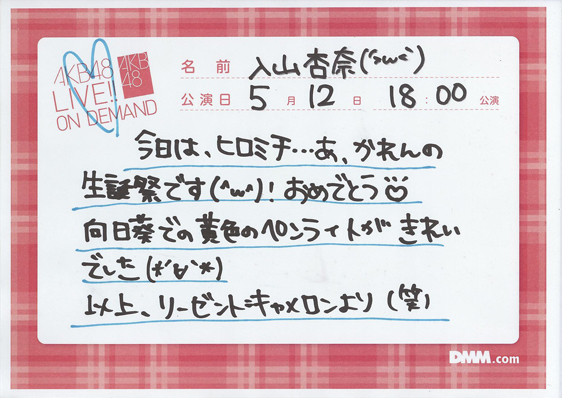 AKB48
LIVE!!
ON DEMAND
AKB
48
名前 入山杏奈(´>ω<`)
公演日 5月12日 18:00公演
今日は、ヒロミチ…あ、かれんの
生誕祭です(^ω^)!おめでとう
向日葵での黄色のペンライトがきれい
でした(*'∀'*)
以上、リーゼントキャメロンより(笑)
DMM.com